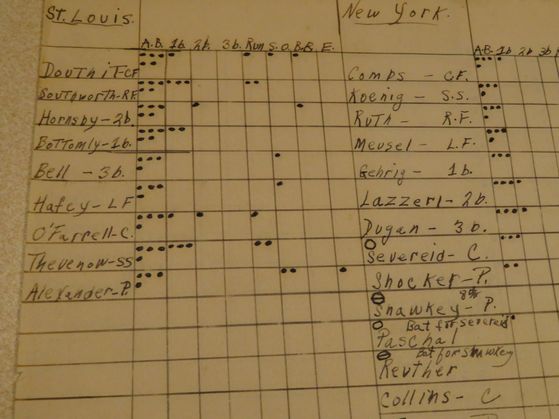 St. Louis.
New York.
A.B. 1b. 2b. 3b. Run S.O. B.B. E.
A.B. 1b 2b 3b
Douthit-CF
Southworth-R.F.
Hornsby-2b.
Bottomly-1b.
Bell - 3b.
Hafey-LF
O'Farrell-C.
Thevenow-SS
Alexander-P.
Combs - C.F.
Koenig - S.S.
Ruth - R.F.
Meusel - L.F.
Gehrig - 1b.
Lazzeri-2b.
Dugan - 3b.
Severeid-C.
Shocker-P.
Shawkey-P.
Bat for Severeid
Paschal
Bat for Shawkey
Reuther
Collins-C